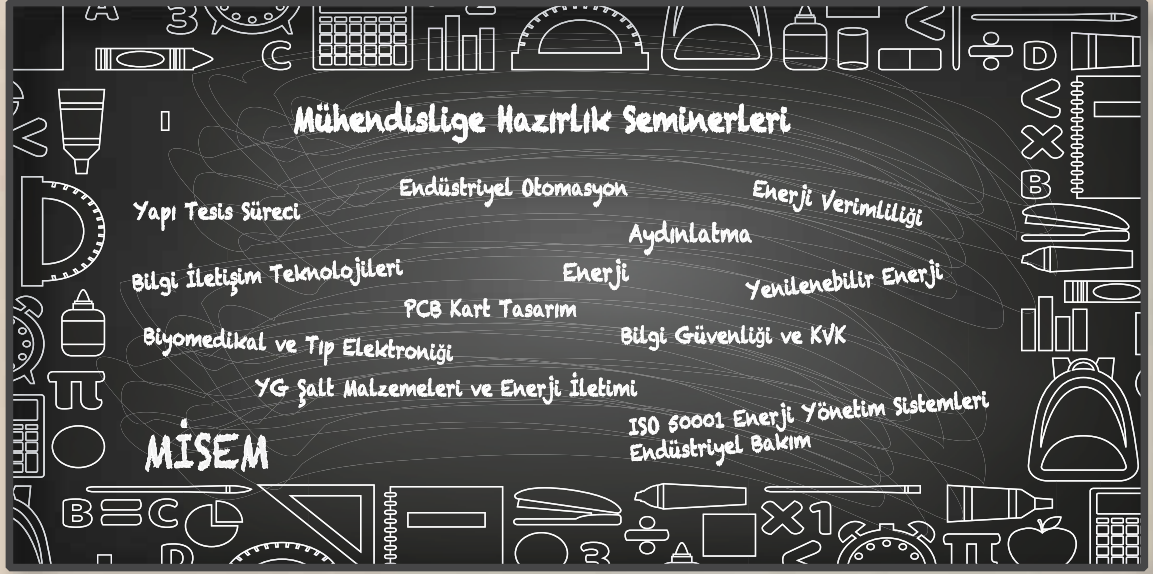 Mühendislige Hazırlık Seminerleri
Endüstriyel Otomasyon
Enerji Verimliliği
Yapı Tesis Süreci
Aydınlatma
Bilgi İletişim Teknolojileri
Enerji
Yenilenebilir Enerji
PCB Kart Tasarım
Biyomedikal ve Tıp Elektroniği
Bilgi Güvenliği ve KVK
YG Şalt Malzemeleri ve Enerji İletimi
ISO 50001 Enerji Yönetim Sistemleri
Endüstriyel Bakım
MİSEM